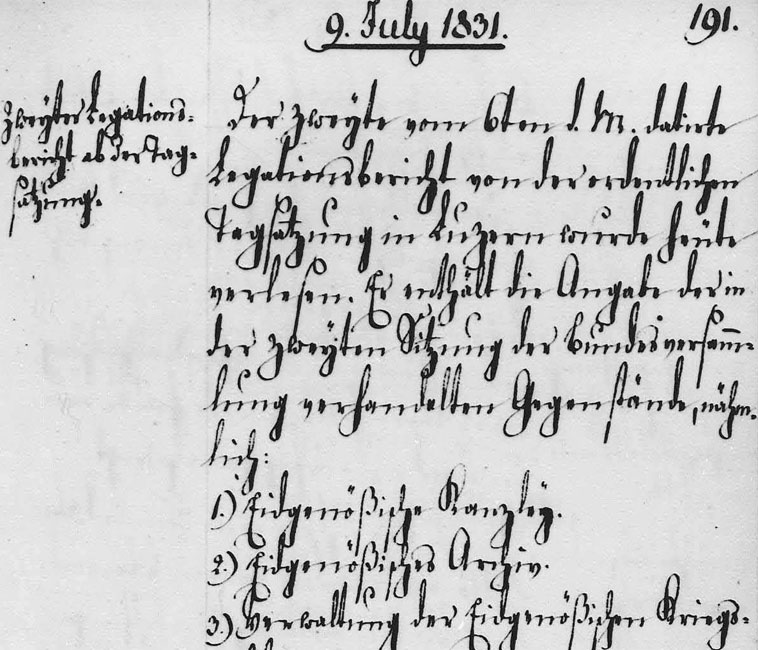 9. July 1831.
191.
Zweyter Legations-
bericht ab der Tag-
satzung.
Der zweyte vom 6ten d. M. datirte
Legationsbericht von der ordentlichen
Tagsatzung in Luzern wurde heute
verlesen. Er enthält die Angabe der in
der zweyten Sitzung der Bundesversam̅-
lung verhandelten Gegenstände, nähm-
lich:
1.) Eidgenößische Kanzley.
2.) Eidgenößisches Archiv.
3.) Verwaltung der Eidgenößischen Kriegs-